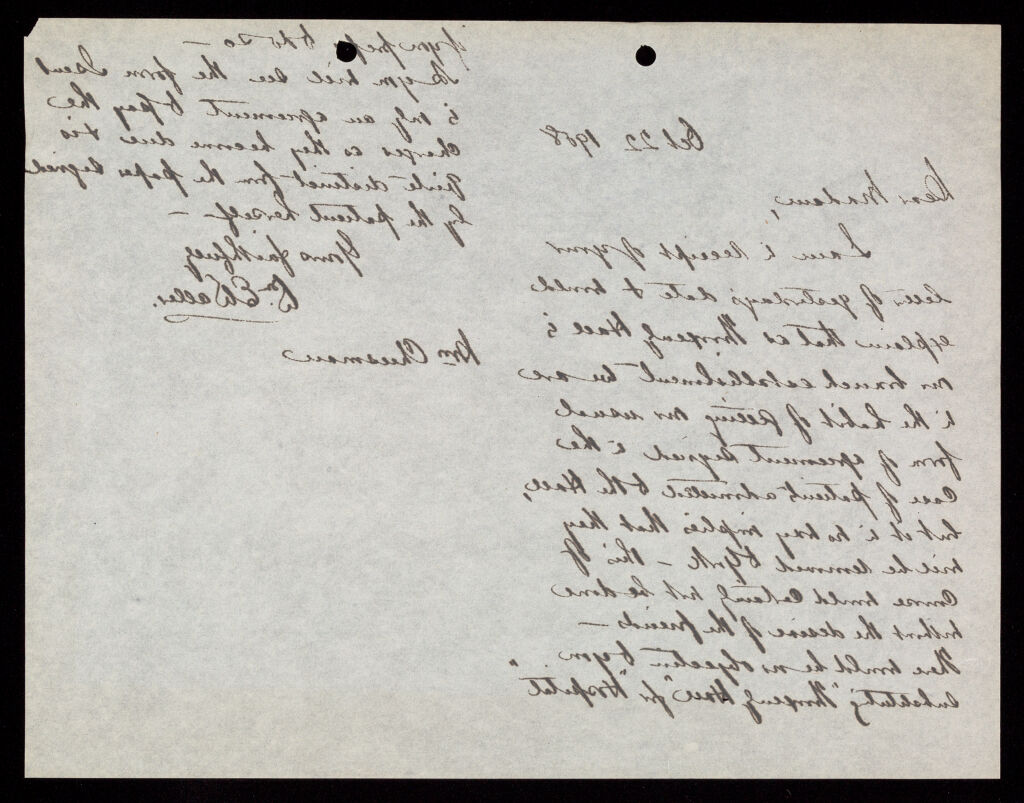 Oct 22 1908
Dear Madam,
I am in receipt of your
letter of yesterday's date & would
explain that as Throxenby Hall is
our branch establishment we are
in the habit of getting our usual
form of agreement signed in the
case of patients admitted to the Hall,
but it in no way implies that they
will be removed to York – this of
course would certainly not be done
without the desire of the friends –
There would be no objection to your
substituting "Throxenby Hall" for "Hospital"
if you prefer to do so –
As you will see the form I sent
is only an agreement to pay the
charges as they become due & is
quite distinct from the paper signed
by the patient herself –
Yours faithfully
Wm Cheesman